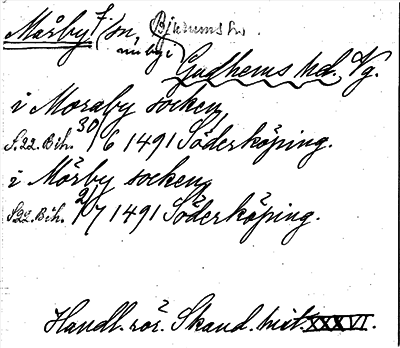 Mårby f/sn, Bjurums sn.
nu by i
Gudhems hd. Vg.
i Moraby socken
S. 22. Bih. 30/6 1491 Söderköping.
i Mörby socken
S. 22. Bih. 2/7 1491 Söderköping.
Handl. rör. Skand. hist. XXXVI.